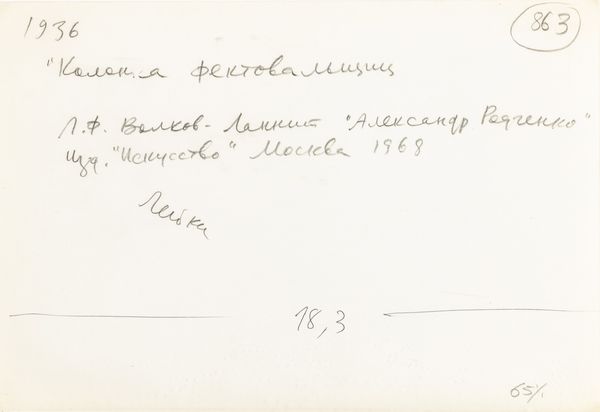 1936
863
"Колонна фехтовальщиц
Л.Ф. Волков-Ланнит "Александр Родченко"
изд. "Искусство" Москва 1968
Лейка
18,3
65%